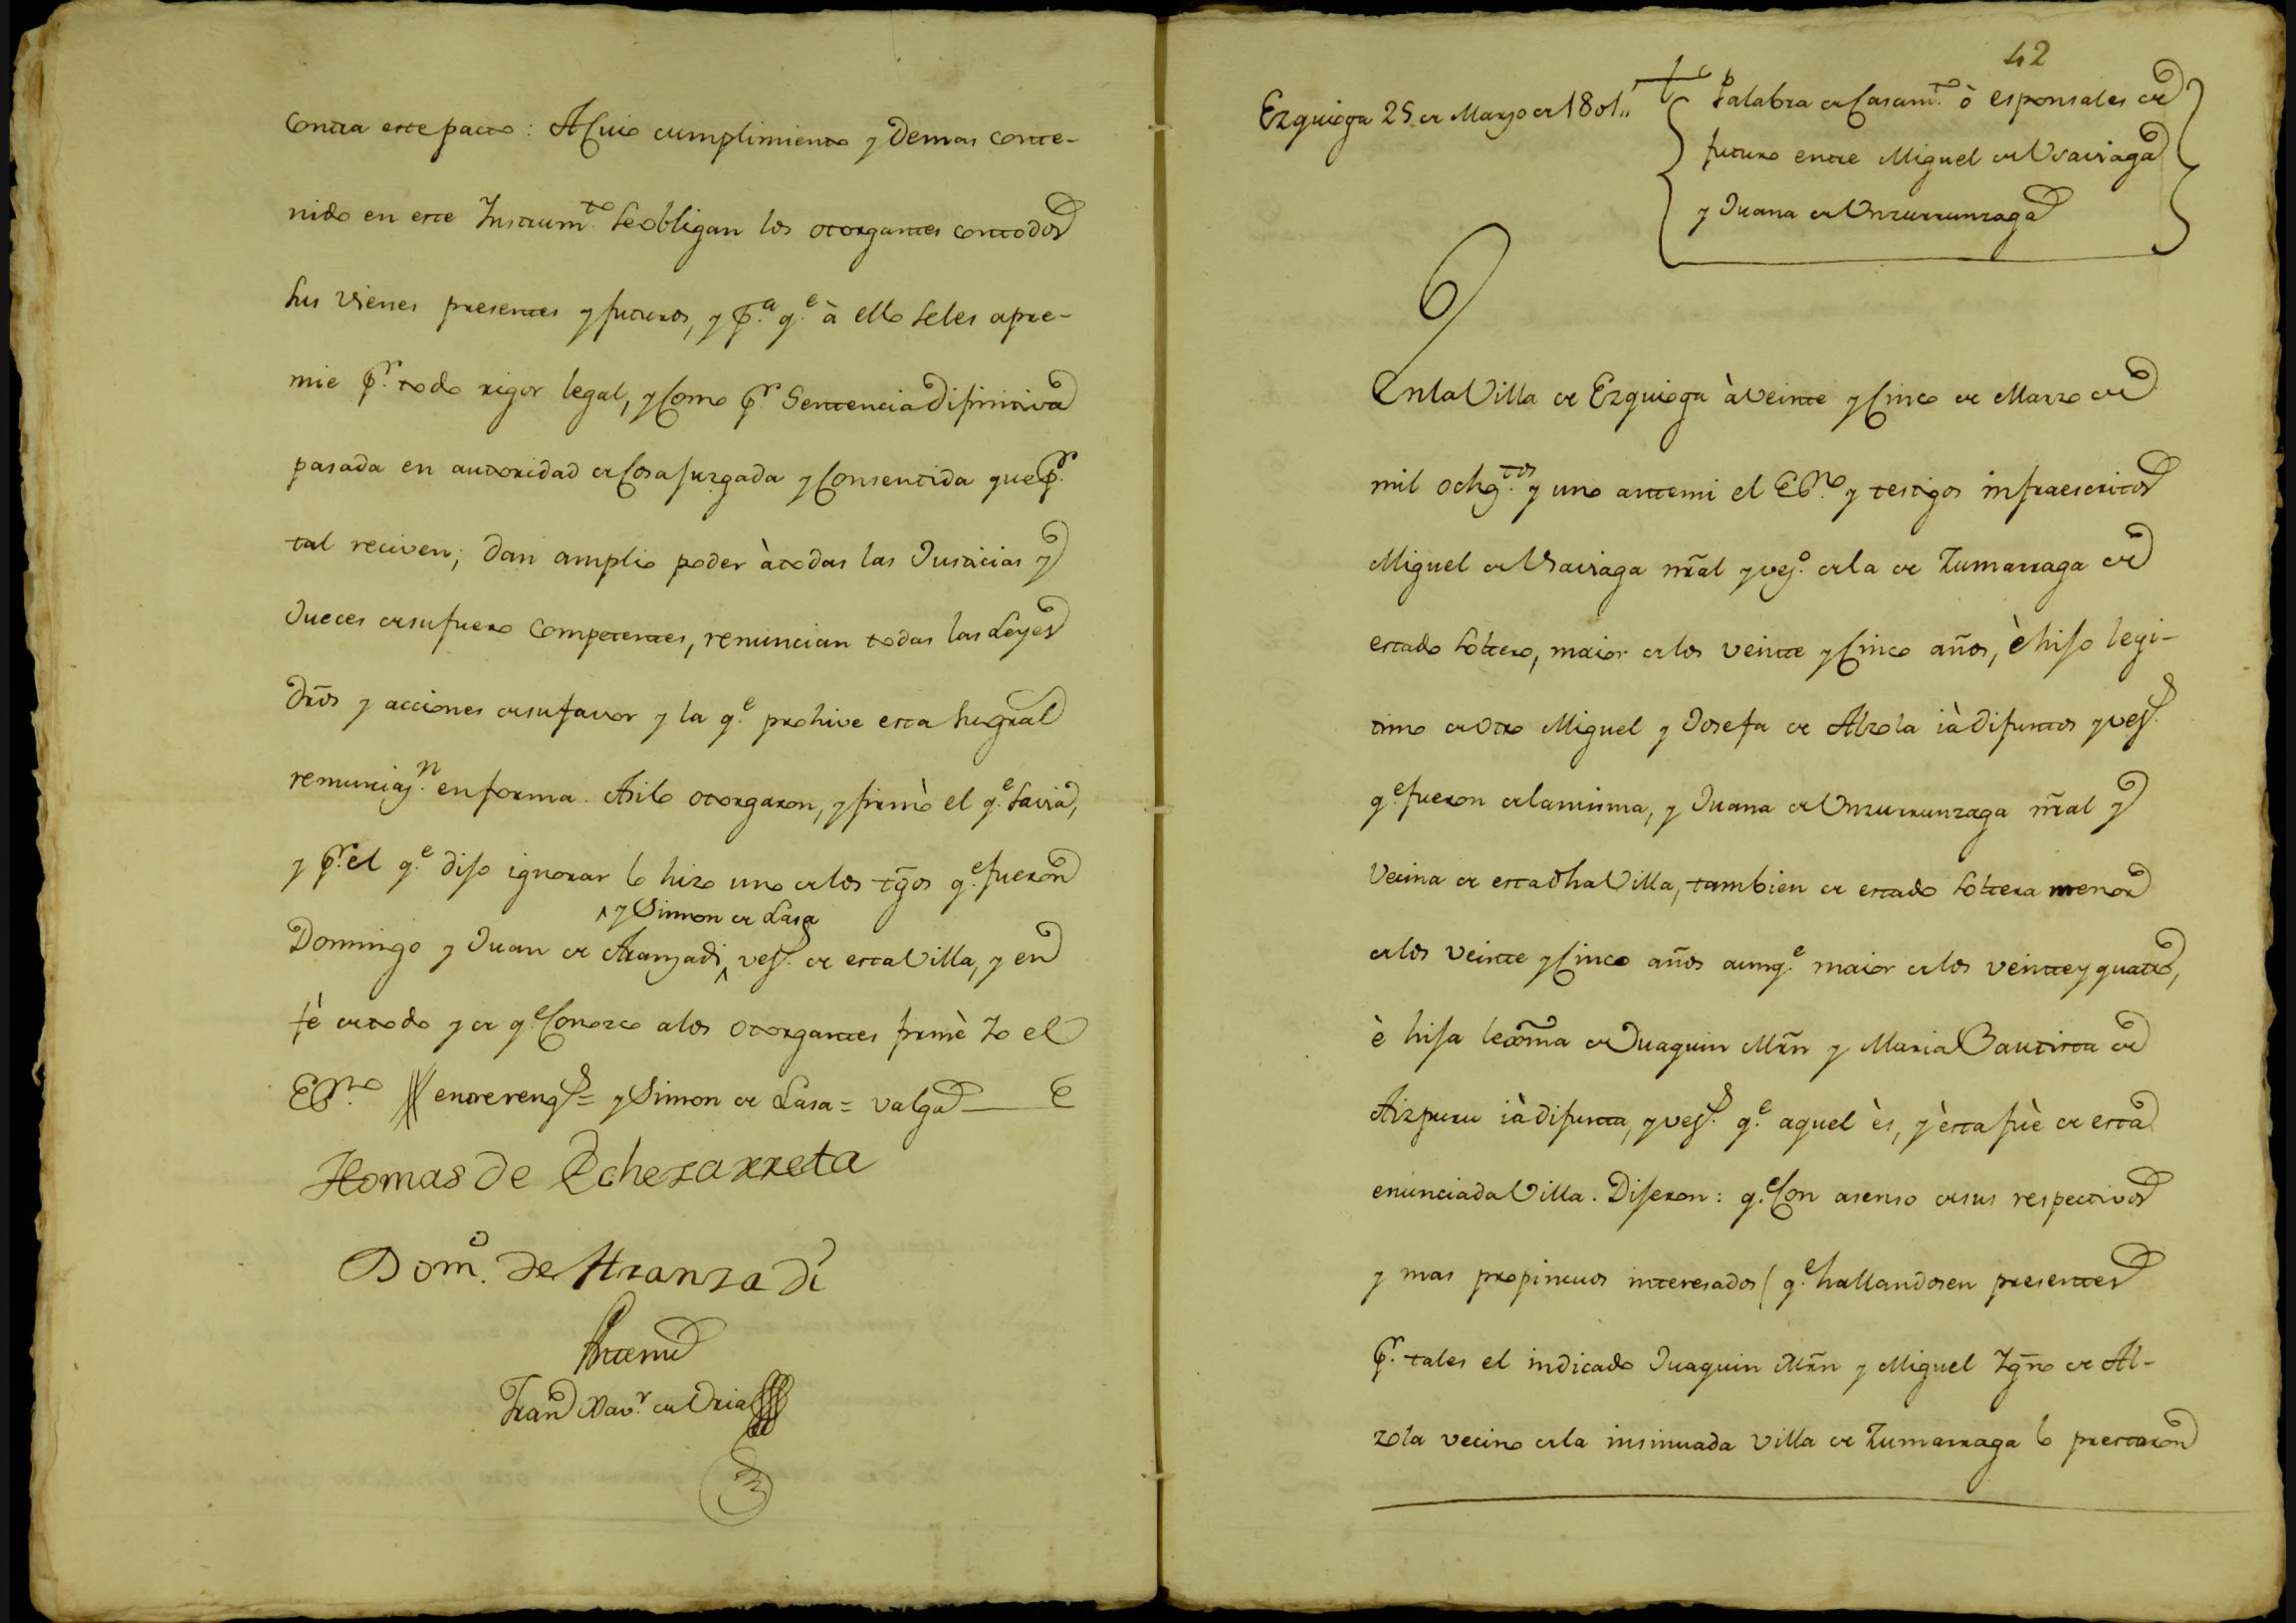 contra este pacto: A Cuio cumplimiento y demas conte-
nido en este Instrum.to se obligan los otorgantes con todos
sus vienes presentes y futuros, y p.a q.e à ello se les apre-
mie p.r todo rigor legal, y Como p.r Sentencia difinitiva
pasada en autoridad de Cosa jusgada y Consentida que p.r
tal reciven; dan amplio poder à todas las Justicias y
Jueces de su fuero Competentes, renuncian todas las Leyes
dr̃os y acciones de su favor y la q.e prohive esta su gral
renunciaz.n en forma. Asilo otorgaron, y firmò el q.e savia,
y p.r el q.e dijo ignorar lo hizo uno de los tg̃os q.e fueron
y Simon de Lasa
Domingo y Juan de Aranzadi, vez.s de esta Villa, y en
fè de todo y de q.e Conozco a los otorgantes firmè Yo el
Es.no entrereng.s = y Simon de Lasa = valga
Thomas de Echezarreta
Dom.o de Aranzadi
Antemi
Fran.co Xav.r de Oria
42
Ezquioga 25 de Marzo de 1801"
Palabra de Casam.to ò esponsales de
futuro entre Miguel de Vsaviaga
y Juana de Vnzurrunzaga
En la Villa de Ezquioga à veinte y Cinco de Marzo de
mil ochoz.tos y uno antemi el Es.no y testigos infraescritos
Miguel de Vsaviaga nr̃al y vez.o de la de Zumarraga de
estado soltero, maior de los veinte y Cinco años, è hijo legi-
timo de otro Miguel y Josefa de Alzola ià difuntos y vez.s
q.e fueron de la misma, y Juana de Vnzurrunzaga nr̃al y
Vecina de esta dha Villa, tambien de estado soltera menor
de los veinte y Cinco años aunq.e maior de los veinte y quatro,
è hija lexma de Juaquin Mr̃n y Maria Bautista de
Aizpuru ià difunta, y vez.s q.e aquel ès, y èsta fuè de esta
enunciada Villa. Dijeron: q.e Con asenso de sus respectivos
y mas propincuos interesados (q.e hallandosen presentes
p.r tales el indicado Juaquin Mr̃n y Miguel Ygñ.o de Al-
zola vecino de la insinuada Villa de Zumarraga lo prestaron